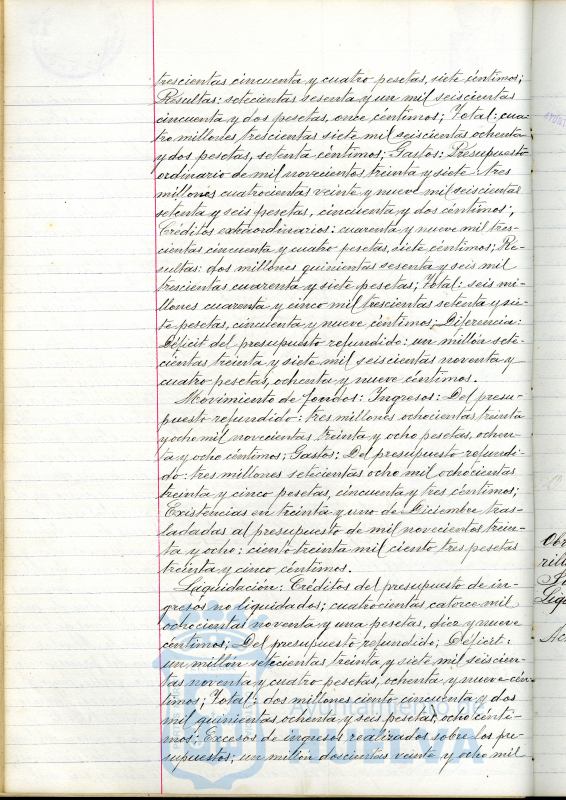 trescientas cincuenta y cuatro pesetas, siete céntimos;
Resultas: setecientas sesenta y un mil seiscientas
cincuenta y dos pesetas, once céntimos; Total: cua-
tro millones trescientas siete mil seiscientas ochenta
y dos pesetas, setenta céntimos; Gastos: Presupuesto
ordinario de mil novecientos treinta y siete: tres
millones cuatrocientas veinte y nueve mil seiscientas
setenta y seis pesetas, cincuenta y dos céntimos;
Créditos extraordinarios: cuarenta y nueve mil tres-
cientas cincuenta y cuatro pesetas, siete céntimos; Re-
sultas: dos millones quinientas sesenta y seis mil
trescientas cuarenta y siete pesetas; Total: seis mi-
llones cuarenta y cinco mil trescientas setenta y sie-
te pesetas, cincuenta y nueve céntimos; Diferencia:
Déficit del presupuesto refundido: un millón sete-
cientas treinta y siete mil seiscientas noventa y
cuatro pesetas, ochenta y nueve céntimos.
Movimiento de fondos: Ingresos: Del presu-
puesto refundido: tres millones ochocientas treinta
y ocho mil novecientas treinta y ocho pesetas, ochen-
ta y ocho céntimos; Gastos: Del presupuesto refundi-
do: tres millones setecientas ocho mil ochocientas
treinta y cinco pesetas, cincuenta y tres céntimos;
Existencias en treinta y uno de Diciembre tras-
ladadas al presupuesto de mil novecientos trein-
ta y ocho: ciento treinta mil ciento tres pesetas
treinta y cinco céntimos.
Liquidación: Créditos del presupuesto de in-
gresos no liquidados; cuatrocientas catorce mil
ochocientas noventa y una pesetas, diez y nueve
céntimos; Del presupuesto refundido; Déficit:
un millón setecientas treinta y siete mil seiscien-
tas noventa y cuatro pesetas, ochenta y nueve cén-
timos; Total: dos millones ciento cincuenta y dos
mil quinientas ochenta y seis pesetas, ocho cénti-
mos; Excesos de ingresos realizados sobre los pre-
supuestos; un millón doscientas veinte y ocho mil
Ayuntamiento de
HUELVA